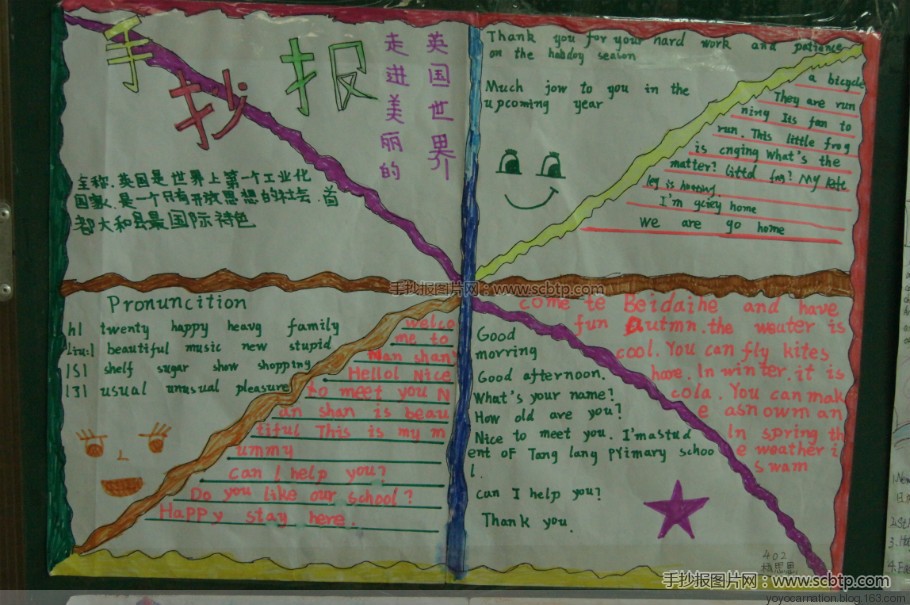 手
抄
报
走进美丽的
英国世界
全称.英国是世界上第一个工业化
国家.是一个具有开放思想的社会.首
都大和县最国际特色
Thank you for your hard work and patience
on the holiday season
Much jow to you in the
upcoming year
a bicycle
They are run
ning Its fan to
run. This little frog
is cnging What's the
matter? Little fog? My kate
leg is hurting.
I'm gciey home
we are go home
Pronuncition
twenty happy heavg family
beautiful music new stupid
shelf sugar show shopping
usual unusual pleasure
welco
me to
Nan shan!
Hello! Nice
to meet you N
an shan is beau
tiful This is my m
ummy
Can I help you?
Do you like our school?
Happy stay here.
Good
morring
Good afternoon.
What's your name?
How old are you?
Nice to meet you. I'mastud
ent of Tang lang primary schoo
l.
can I help you?
Thank you.
come te Beidaihe and have
fun autmn.the weater is
cool. You can fly kites
here. In winter. it is
cola. You can mak
e asnowm an
In spring th
e weather i
s wam
402
手抄报图片网：www.scbtp.com
手抄报图片网：www.scbtp.com
yoyocarnation.blog.163.com